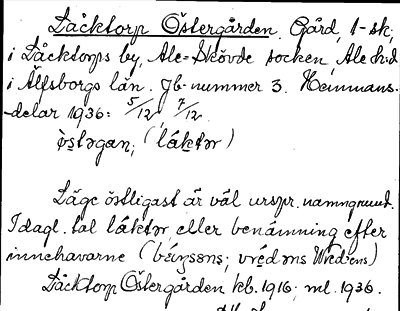 Låcktorp Östergården. Gård, 1-sk;
i Låcktorps by, Ale-Skövde socken, Ale h:d
i Älfsborgs län. Jb-nummer 3. Hemmans-
-delar 1936: 5/12, 7/12.
ö̀stəgan; (láktər)
Läge östligast är väl urspr. namngrund.
I dagl. tal láktər eller benämning efter
innehavarne (béŋsəns; vrédəns Wred:ens)
Låcktorp Östergården kb. 1916; ml. 1936.